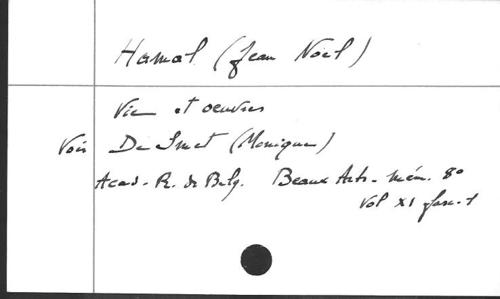 Hamal (Jean Noël)
Vie et oeuvres
Voir De Smet (Monique)
Acad. R. de Belg. Beaux Arts. Mém. 8°
Vol XI fasc. 1